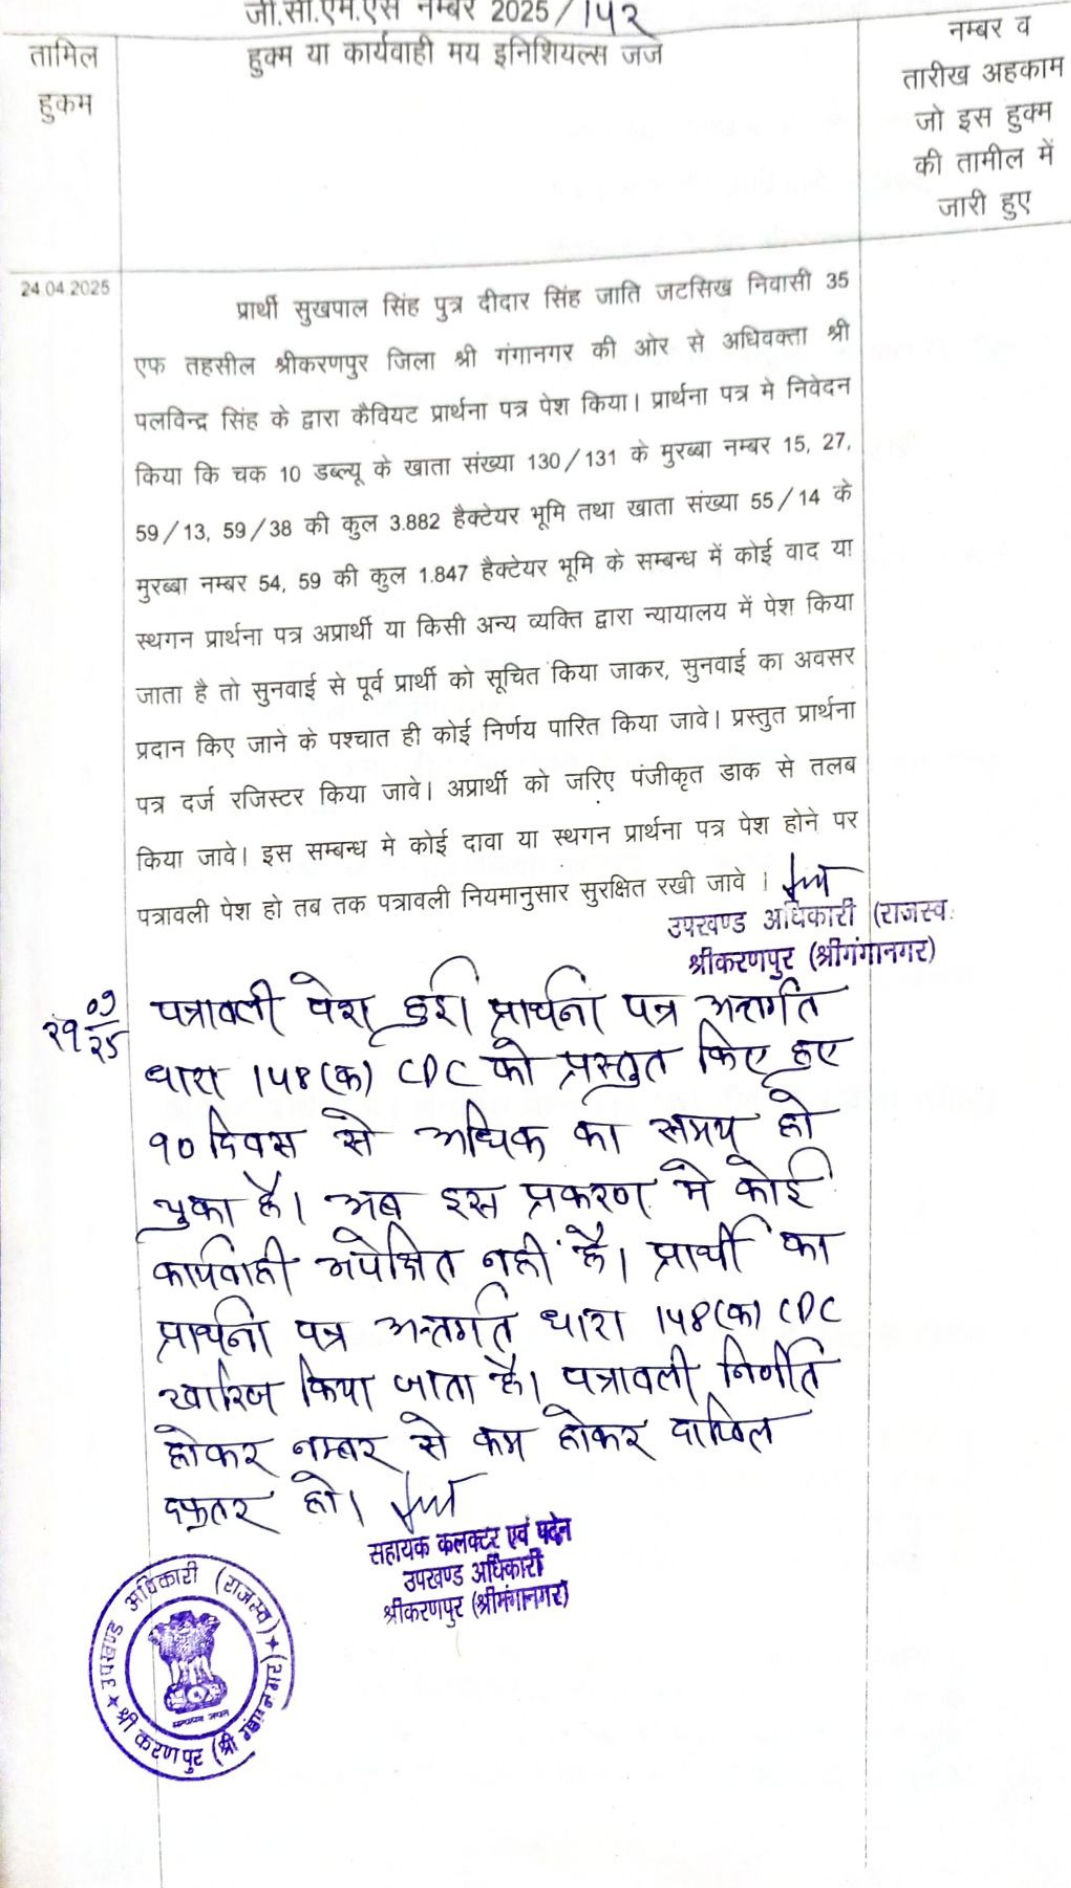 जी.सी.एम.एस नम्बर 2025/१५२
तामिल
हुकम
हुक्म या कार्यवाही मय इनिशियल्स जज
नम्बर व
तारीख अहकाम
जो इस हुक्म
की तामील में
जारी हुए
24.04.2025
प्रार्थी सुखपाल सिंह पुत्र दीदार सिंह जाति जटसिख निवासी 35
एफ तहसील श्रीकरणपुर जिला श्री गंगानगर की ओर से अधिवक्ता श्री
पलविन्द्र सिंह के द्वारा कैवियट प्रार्थना पत्र पेश किया। प्रार्थना पत्र मे निवेदन
किया कि चक 10 डब्ल्यू के खाता संख्या 130/131 के मुरब्बा नम्बर 15, 27,
59/13, 59/38 की कुल 3.882 हैक्टेयर भूमि तथा खाता संख्या 55/14 के
मुरब्बा नम्बर 54, 59 की कुल 1.847 हैक्टेयर भूमि के सम्बन्ध में कोई वाद या
स्थगन प्रार्थना पत्र अप्रार्थी या किसी अन्य व्यक्ति द्वारा न्यायालय में पेश किया
जाता है तो सुनवाई से पूर्व प्रार्थी को सूचित किया जाकर, सुनवाई का अवसर
प्रदान किए जाने के पश्चात ही कोई निर्णय पारित किया जावे। प्रस्तुत प्रार्थना
पत्र दर्ज रजिस्टर किया जावे। अप्रार्थी को जरिए पंजीकृत डाक से तलब
किया जावे। इस सम्बन्ध मे कोई दावा या स्थगन प्रार्थना पत्र पेश होने पर
पत्रावली पेश हो तब तक पत्रावली नियमानुसार सुरक्षित रखी जावे ।
उपखण्ड अधिकारी (राजस्व.
श्रीकरणपुर (श्रीगंगानगर)
पत्रावली पेश हुई। प्रार्थना पत्र अन्तर्गत
धारा १४८(क) CPC को प्रस्तुत किए हुए
९० दिवस से अधिक का समय हो
चुका है। अब इस प्रकरण मे कोई
कार्यवाही अपेक्षित नहीं है। प्रार्थी का
प्रार्थना पत्र अन्तर्गत धारा १४८(क) CPC
खारिज किया जाता है। पत्रावली निर्णीत
होकर नम्बर से कम होकर दाखिल
दफ्तर हो।
सहायक कलक्टर एवं पदेन
उपखण्ड अधिकारी
श्रीकरणपुर (श्रीगंगानगर)
उपखण्ड अधिकारी (राजस्व)
श्री करणपुर (श्री गंगानगर)